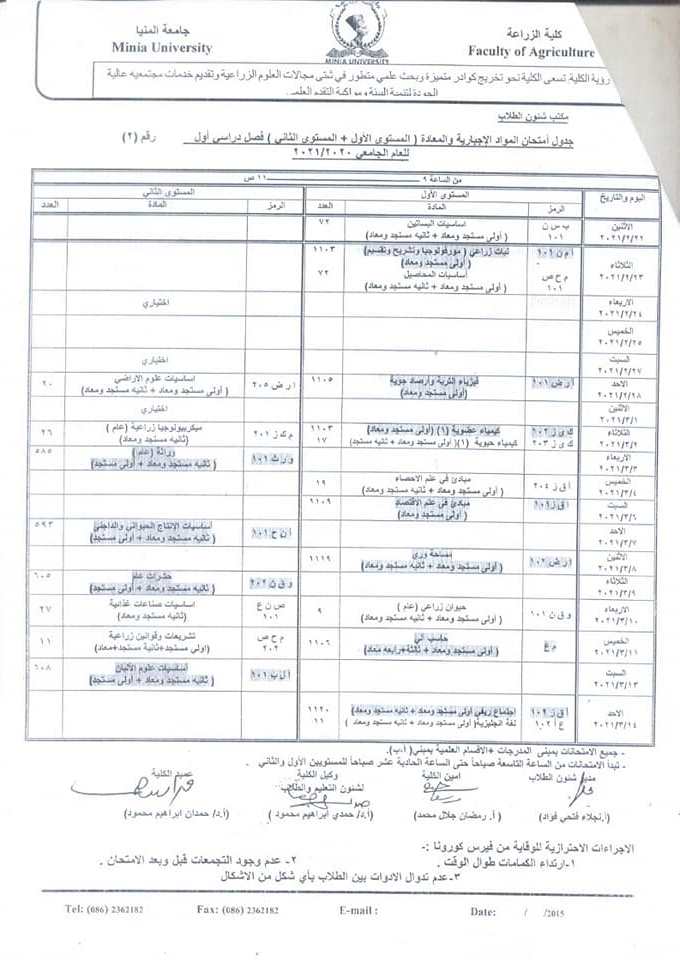 جامعة المنيا
Minia University
MINIA UNIVERSITY
كلية الزراعة
Faculty of Agriculture
رؤية الكلية: تسعى الكلية نحو تخريج كوادر متميزة وبحث علمي متطور في شتى مجالات العلوم الزراعية وتقديم خدمات مجتمعيه عالية
الجودة لتنمية البيئة ومواكبة التقدم العلمي
مكتب شئون الطلاب
جدول أمتحان المواد الإجبارية والمعادة ( المستوي الأول + المستوي الثاني ) فصل دراسي أول رقم (٢)
للعام الجامعي ٢٠٢١/٢٠٢٠
من الساعة ٩ ــ ١١ ص
اليوم والتاريخ المستوي الأول المستوي الثاني
الرمز المادة العدد الرمز المادة العدد
الاثنين ب س ن اساسيات البساتين ٧٢
٢٠٢١/٢/٢٢ ١٠١ ( أولى مستجد ومعاد + ثانيه مستجد ومعاد)
أ م ن ١٠١ نبات زراعي ( مورفولوجيا وتشريح وتقسيم) ١١٠٣
الثلاثاء ( أولي مستجد ومعاد)
٢٠٢١/٢/٢٣ م ح ص أساسيات المحاصيل ٧٢
١٠١ ( أولى مستجد ومعاد + ثانيه مستجد ومعاد)
الاربعاء اختياري
٢٠٢١/٢/٢٤
الخميس
٢٠٢١/٢/٢٥
السبت اختياري
٢٠٢١/٢/٢٧
الاحد أ ر ض ١٠١ فيزياء التربة وأرصاد جوية ١١٠٥ ا ر ض ٢٠٥ اساسيات علوم الاراضي ٢٠
٢٠٢١/٢/٢٨ (أولي مستجد ومعاد) ( أولى مستجد ومعاد + ثانيه مستجد ومعاد)
الاثنين اختياري
٢٠٢١/٣/١
الثلاثاء ك ى ز ١٠٢ كيمياء عضوية (١) (أولى مستجد ومعاد) ١١٠٣ م ك ز ٢٠١ ميكربيولوجيا زراعية (عام ) ٢٦
٢٠٢١/٣/٢ ك ى ز ٢٠٣ كيمياء حيوية (١)( أولى مستجد ومعاد + ثانيه مستجد) ١٧ (ثانيه مستجد ومعاد)
الاربعاء و ر ث ١٠١ وراثة (عام ) ٥٨٥
٢٠٢١/٣/٣ ( ثانيه مستجد ومعاد + أولى مستجد)
الخميس أ ق ز ٢٠٤ مبادئ في علم الاحصاء ١٩
٢٠٢١/٣/٤ ( أولى مستجد ومعاد + ثانيه مستجد ومعاد)
السبت أ ق ز ١٠١ مبادئ في علم الاقتصاد ١١٠٩
٢٠٢١/٣/٦ ( أولي مستجد ومعاد)
الاحد أ ن ح ١٠١ أساسيات الإنتاج الحيواني والداجني ٥٩٣
٢٠٢١/٣/٧ ( ثانيه مستجد ومعاد + أولى مستجد)
الاثنين أ ر ض ١٠٢ مساحة وري ١١١٩
٢٠٢١/٣/٨ ( أولى مستجد ومعاد + ثانيه مستجد ومعاد)
الثلاثاء و ق ن ٢٠٢ حشرات عام ٦٠٥
٢٠٢١/٣/٩ ( ثانيه مستجد ومعاد + أولى مستجد)
الاربعاء و ق ن ١٠١ حيوان زراعي (عام ) ٩ ص ن ع اساسيات صناعات غذائية ٢٧
٢٠٢١/٣/١٠ ( أولى مستجد ومعاد + ثانيه مستجد ومعاد) ١٠١ ( ثانيه مستجد ومعاد + أولى مستجد)
الخميس م ع حاسب آلي ١١٠٦ م ح ص تشريعات وقوانين زراعية ١١
٢٠٢١/٣/١١ ( أولى مستجد ومعاد + ثالثة+رابعه معاد) ٢٠٢ (اولي مستجد+ثانية مستجد+معاد)
السبت أ ل ب ١٠١ أساسيات علوم الألبان ٦٠٨
٢٠٢١/٣/١٣ ( ثانيه مستجد ومعاد + أولى مستجد)
الاحد أ ق ز ١٠٢ إجتماع ريفي (أولى مستجد ومعاد + ثانيه مستجد ومعاد) ١١٢٠
٢٠٢١/٣/١٤ ع أ ١٠٢ لغة انجليزية( أولى مستجد ومعاد + ثانيه مستجد ومعاد ) ١١
- جميع الامتحانات بمبنى المدرجات +الاقسام العلمية بمبني(أ-ب).
- تبدأ الامتحانات من الساعة التاسعة صباحاً حتى الساعة الحادية عشر صباحاً للمستويين الأول والثاني
مدير شئون الطلاب امين الكلية وكيل الكلية عميد الكلية
لشئون التعليم والطلاب
(أ.نجلاء فتحي فواد) (أ. رمضان جلال محمد) (أ.د/ حمدي ابراهيم محمود) (أ.د/ حمدان ابراهيم محمود)
الاجراءات الاحترازية للوقاية من فيرس كورونا :-
١-ارتداء الكمامات طوال الوقت . ٢- عدم وجود التجمعات قبل وبعد الامتحان .
٣-عدم تدوال الادوات بين الطلاب بأي شكل من الاشكال
Tel: (086) 2362182 Fax: (086) 2362182 E-mail : Date: / /2015